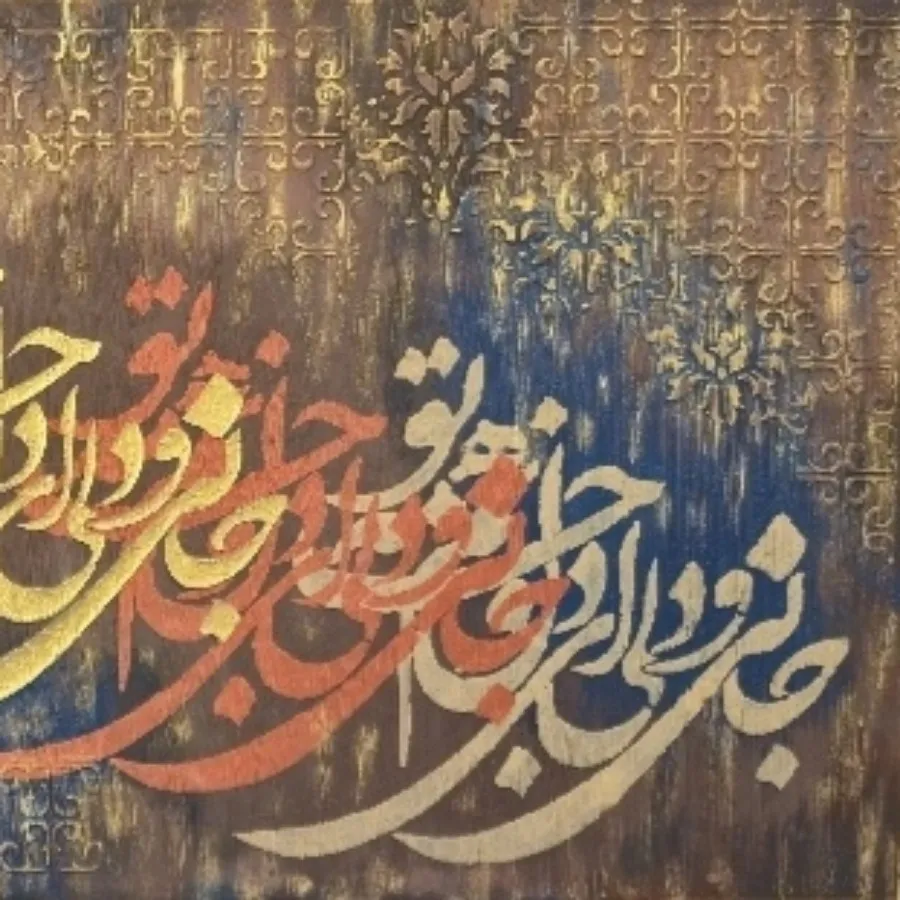 جانی و دلی ای دل و جانم همه تو
جانی و دلی ای دل و جانم همه تو
جانی و دلی ای دل و